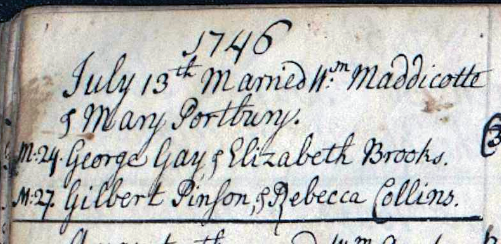 1746
July 13th Married Wm Maddicotte
& Mary Portbury.
M:24. George Gay, & Elizabeth Brooks.
M:27. Gilbert Pinson, & Rebecca Collins.